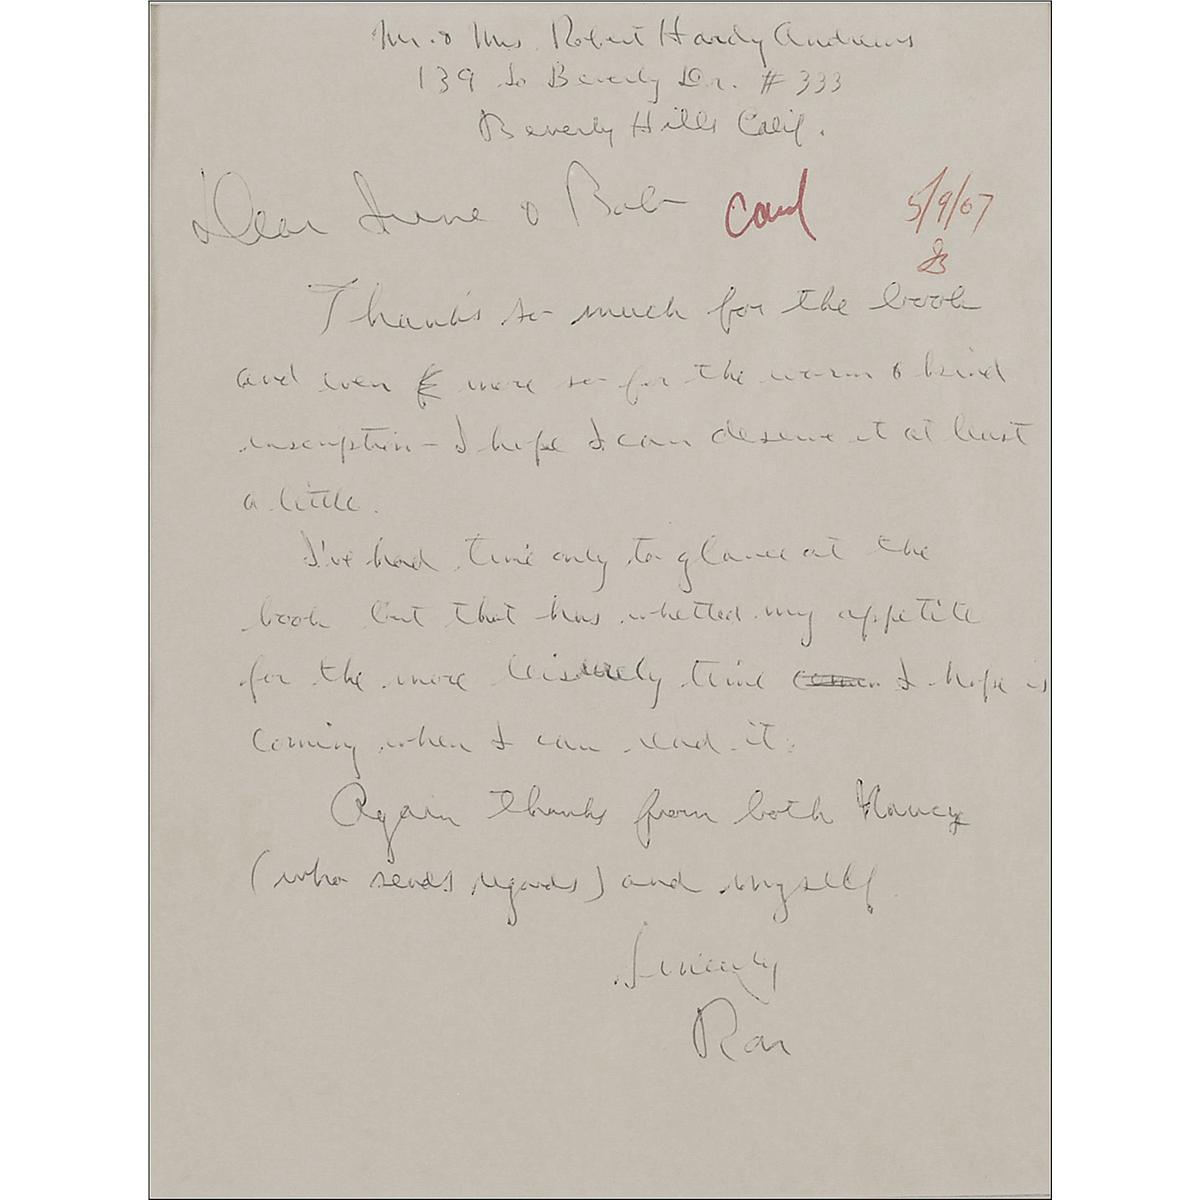 Mr. & Mrs. Robert Hardy Andrews
139 So Beverly Dr. # 333
Beverly Hills Calif.
Dear Irene & Bob
Card
5/9/67
Thanks so much for the book
and even more so for the warm & kind
inscription – I hope I can deserve it at least
a little.
I've had time only to glance at the
book but that has whetted my appetite
for the more leisurely time I hope is
coming when I can read it.
Again thanks from both Nancy
(who sends regards) and myself.
Sincerely
Ron